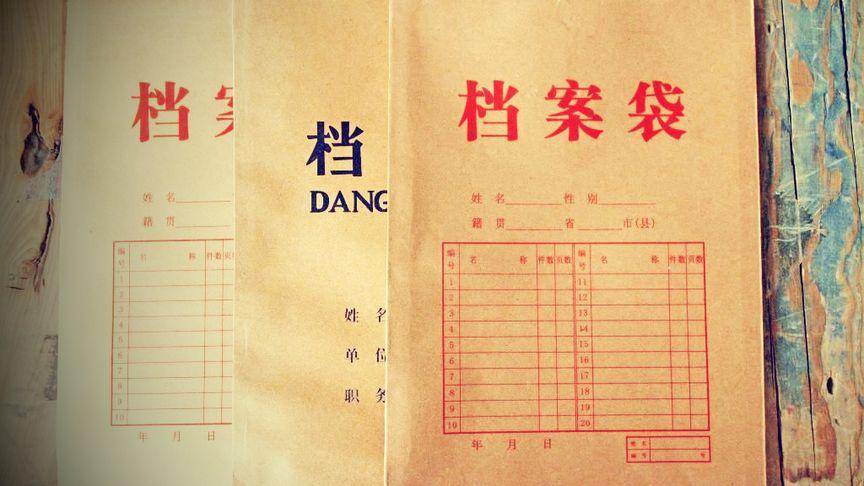 档
姓 名
籍 贯
编号 名 称 件数 页
1
2
3
4
5
6
7
8
9
10
年 月 日
档
DANG
姓 名
单 位
职 务
档 案 袋
姓 名 性 别
籍 贯 省 市(县)
编号 名 称 件数 页数 编号 名 称 件数 页数
1 11
2 12
3 13
4 14
5 15
6 16
7 17
8 18
9 19
10 20
年 月 日
姓 名
编 号 号